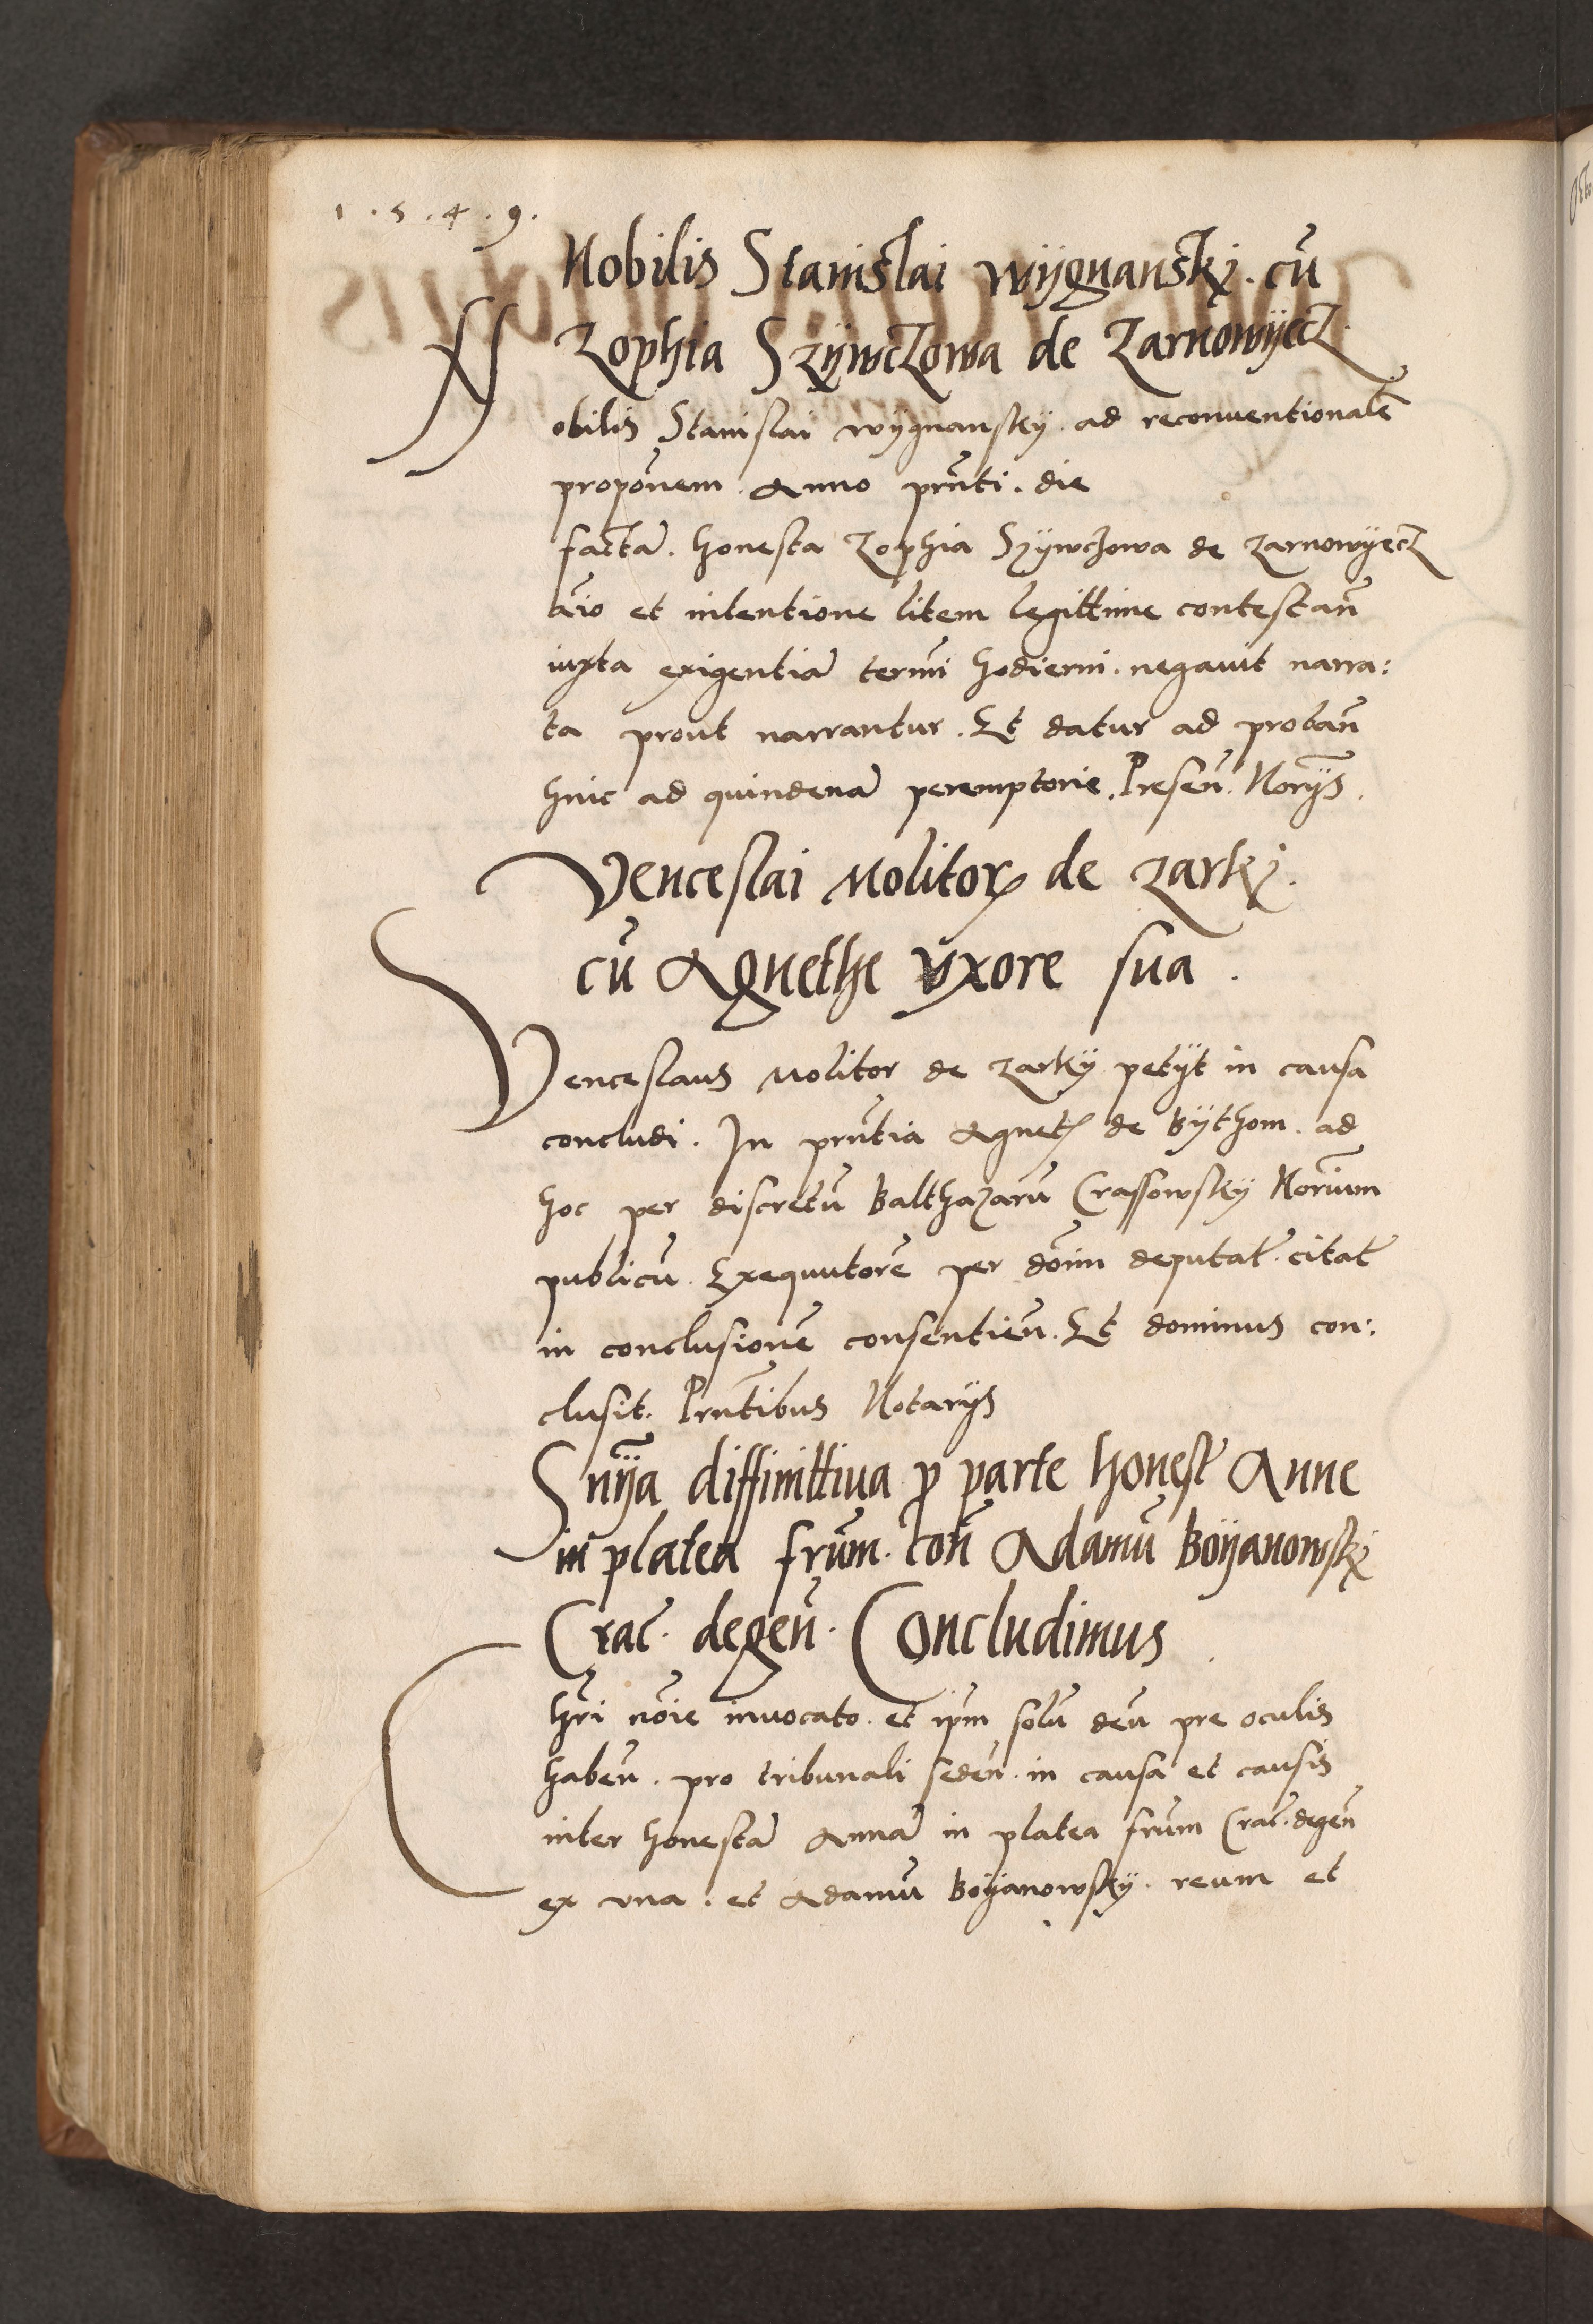 1.5.4.9.
Nobilis Stanislai Wÿgnanskÿ. cū
Zophia Szÿwczowa de Zarnowÿecz.
Nobilis Stanislai Wÿgnanskÿ. ad reconuentionalē
propōnem. Anno pn̄ti. die
factā. honesta Zophia Szÿwczowa de Zarnowÿecz
aīo et intentione litem legittime contestan̄
iuxta exigentiā termī hodierni. negauit narra:
ta prout narrantur. Et datur ad proban̄
hinc ad quindenā peremptorie. Presen̄. Norÿs.
Venceslai Molitor de Zarkÿ.
cū Agnethe vxore sua.
Venceslaus Molitor de Zarkÿ petÿt in causa
concludi. In pn̄tia Agnet de Bÿthom. ad
hoc per discretū Balthazarū Crassowskÿ Norium
publicū. Exequutorē per dōim deputat̄. citat̄
in conclusionē consentien̄. Et dominus con:
clusit. Prn̄tibus Notarÿs
Snÿa diffinittiua p parte honest̄ Anne
in platea frūm. con̄ Adamū Boÿanowskÿ
Crac̄. degen̄. Concludimus.
Chri nōie inuocato. et ipm̄ solū deū pre oculis
haben̄. pro tribunali seden̄. in causa et causis
inter honestā Annā in platea frūm Crac̄. degen̄
ex vna. et Adamū Boÿanowskÿ. reum et